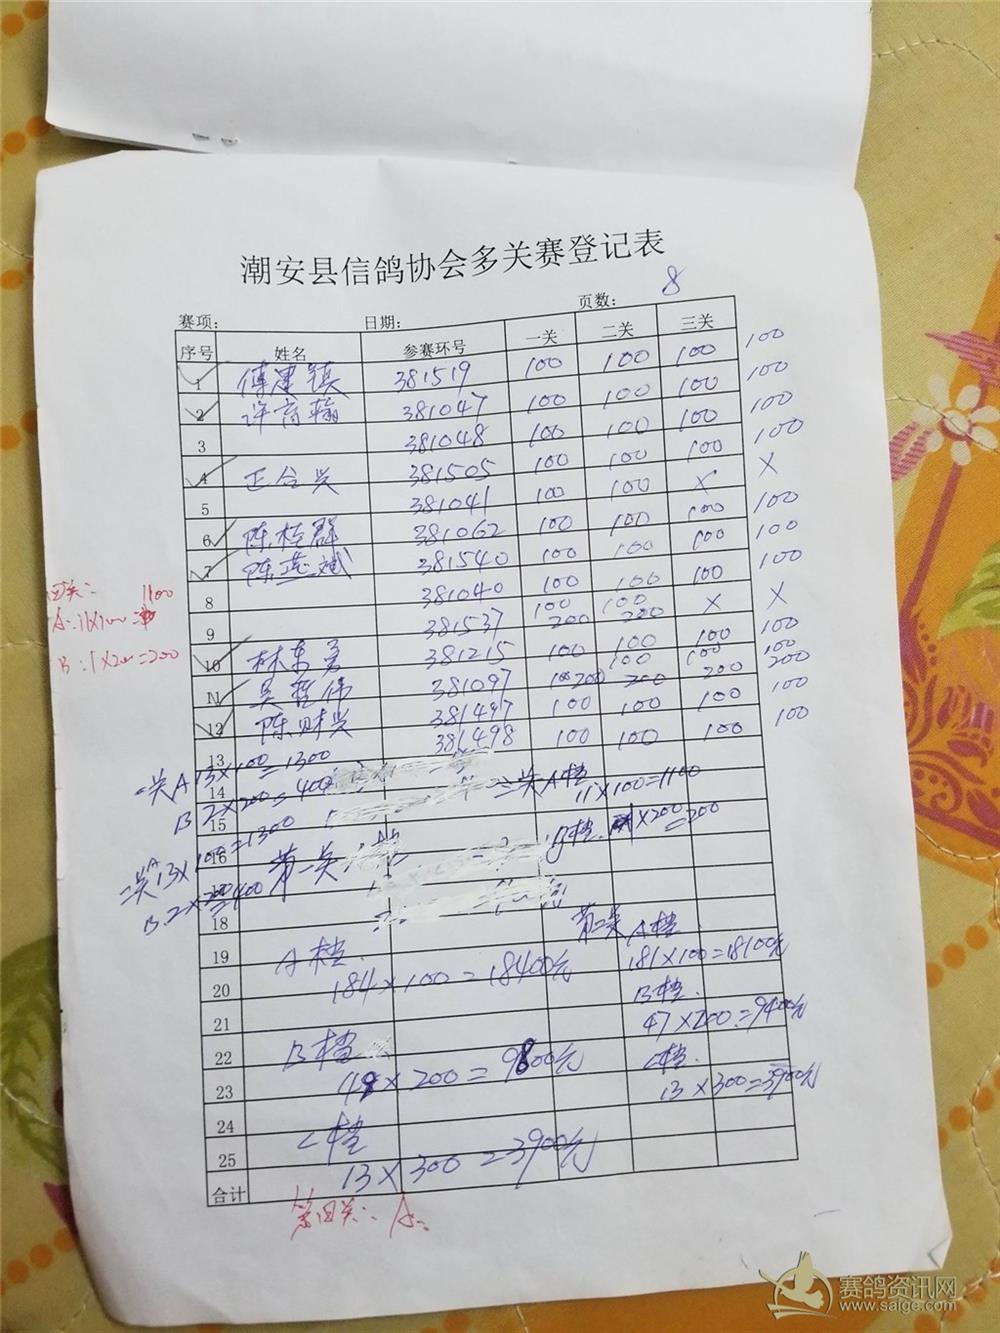 潮安县信鸽协会多关赛登记表
赛项: 日期: 页数: 8
序号 姓名 参赛环号 一关 二关 三关
1 傅建镇 381519 100 100 100 100
2 许育翰 381047 100 100 100 100
3 381048 100 100 100 100
4 正合兴 381505 100 100 100 100
5 381041 100 100 X X
6 陈桂群 381062 100 100 100 100
7 陈燕斌 381540 100 100 100 100
8 381040 100 100 100 100
9 381537 100 200 100 200 X X
10 林东勇 381215 100 100 100 100
11 吴哲伟 381097 100 200 100 200 100 200 100 200
12 陈财兴 381497 100 100 100 100
13 381498 100 100 100 100
四关: 1100
B:1X200=200
一关A 13×100=1300
14
B 2×200=400
三关A档 11×100=1100
15
二关A 13×100=1300
16 第一关
B档 ×200=200
B.2×200=400
18
19 A档. 第二关 A档.
20 184×100=18400元 181×100=18100元
21 B档.
22 B档 47×200=9400元
23 49×200=9800元 C档.
13×300=3900元
24 C档
25 13×300=3900元
合计
第四关: A:
赛鸽资讯网
www.saige.com